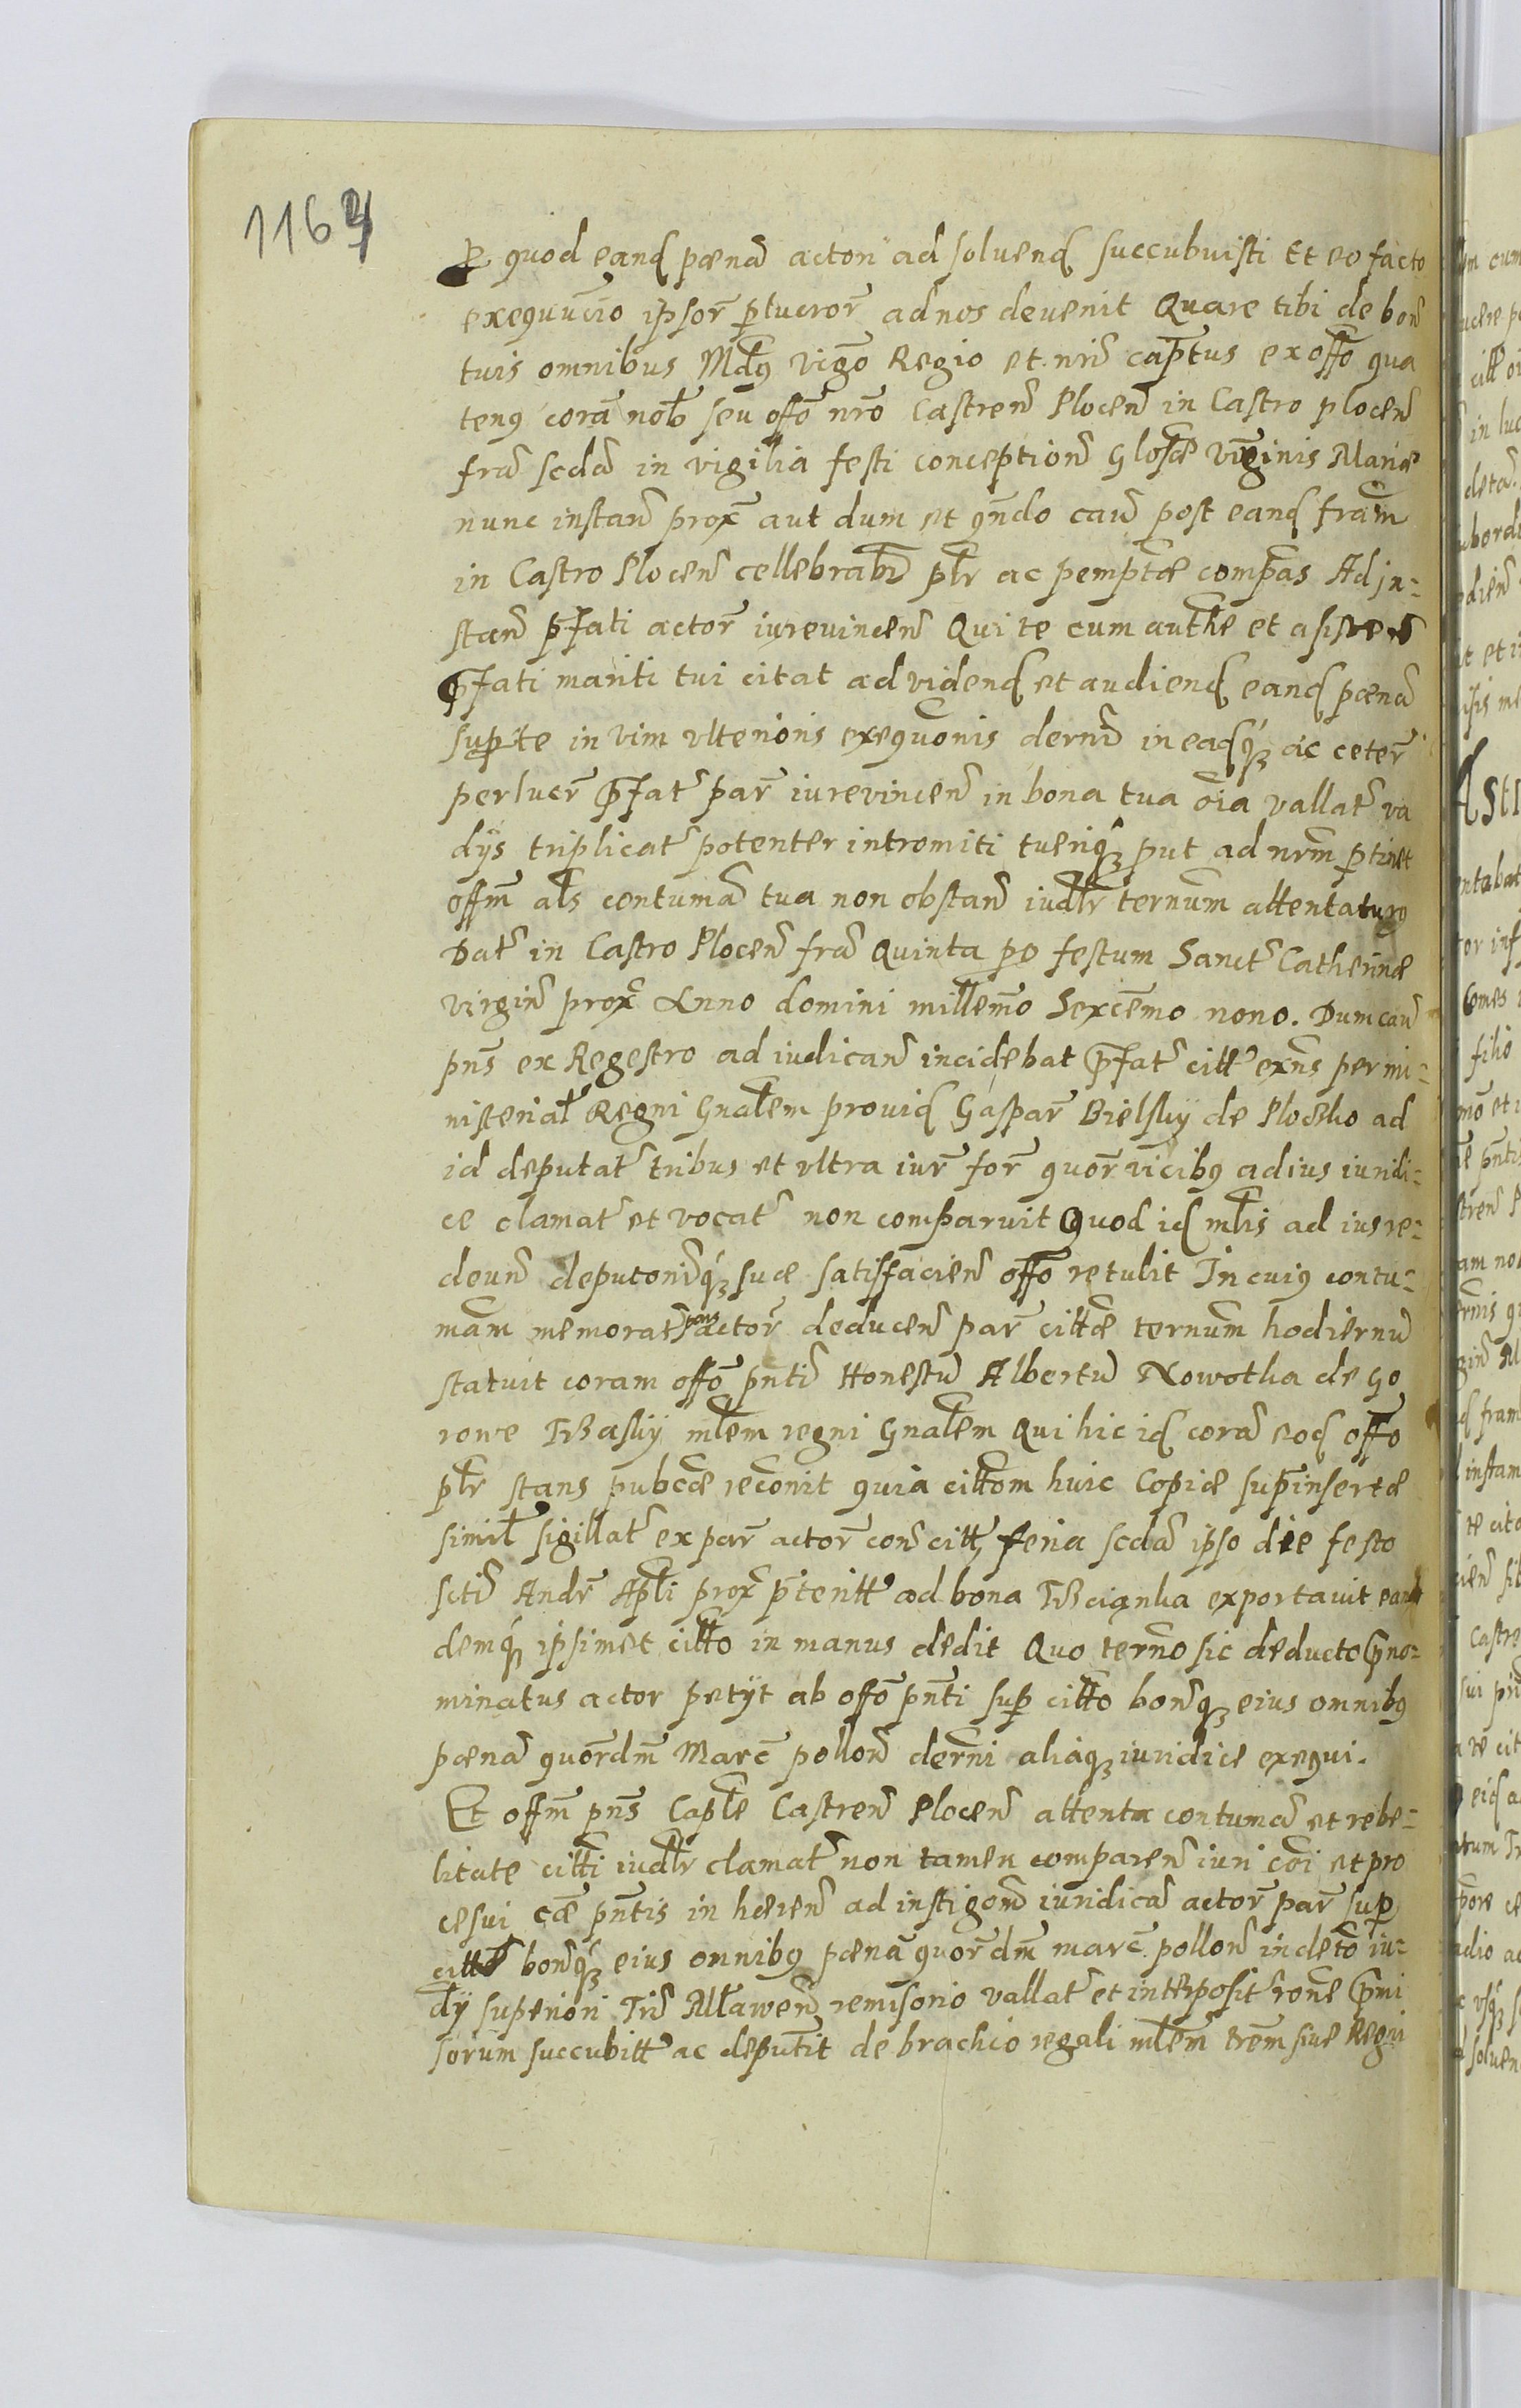 1164
P quod eand pœnā actori ad soluend succubuisti Et eo facto
exequucio ipsor̄ ꝑlucror̄ ad nos deuenit Quare tibi de bon
tuis omnibus Mdꝰ vigō Regio et nrō captus ex offō qua
tenꝰ corā nob seu offō nrō Castren̄ Plocen̄ in Castro plocen̄
frā scdā in vigilia festi conception̄ Glosæ virginis Mariæ
nunc instan̄ prox̄ aut dum et qn̄do cau post eand fram̄
in Castro Plocen̄ cellebrabr̄ plr ac pemptæ compas Ad in-
stan̄ pfati actor̄ iurevincen̄ Qui te cum authe et asisten̄
pfati mariti tui citat ad vidend et audiend eand pœnā
super te in vim vlterioris exequonis dernī in eadqꝫ ac ceter̄
perlucr̄ pfat par̄ iurevincen̄ in bona tua oīa vallat va
dys triplicat potenter intromiti tueriqꝫ put ad nrm̄ ꝑtinet
offm̄ als contumā tua non obstan̄ iudlr ternum attentaturꝰ
Dat in Castro Plocen̄ frā Quinta po festum Sanct Catherinæ
virgin̄ prox̄ Anno domini millemo Sexcemo nono. Dum cau
pn̄s ex Regestro ad iudican̄ incidebat pfat citt exn̄s per mi-
nisterial Regni Gnalem prouid Gaspar̄ Bielsky de Plocsko ad
id deputat tribus et vltra iur̄ for̄ quor̄ vicibꝰ ad ius iuridi-
ce clamat et vocat non comparuit Quod id mlis ad ius re-
deun̄ deputoniqꝫ suæ satisfacien̄ offō retulit In cuiꝰ contu-
mam memorat pars actor̄ deducen̄ par̄ cittæ ternum hodiernū
statuit coram offō pn̄ti Honestū Albertū Nowotka de Go
rowe mlem regni Gnalem Qui hic id corā eod offō
plr stans pubcæ reconit quia cittom huic Copiæ supinsertæ
simil sigillat ex par̄ actor̄ con citt, feria scdā ipso die festo
scti Andr̄ Apli prox̄ pteritt ad bona exportauit ean
demqꝫ ipsimet citto in manus dedit Quo terno sic deducto pno-
minatus actor petyt ab offō pn̄ti sup citto bon̄qꝫ eius omnibꝰ
pœnā quor̄dm̄ Marc̄ pollon̄ derni aliaqꝫ iuridice exequi.
Et offm̄ pn̄s Caple Castren̄ Plocen̄ attenta contumā et rebe-
litate citti iudlr clamat non tamen comparen̄ iuri coi et pro
cesui cæ pn̄tis in hæren̄ ad instigon̄ iuridicā actor̄ par̄ sup
citto bon̄qꝫ eius omnibꝰ pœnā quor̄dm̄ marc̄ pollon̄ in detō iu-
dy superiori Tri Mławen̄ remisorio vallat et interposit rone pmi
sorum succubitt ac deputit de brachio regali mlem trem siue Regni